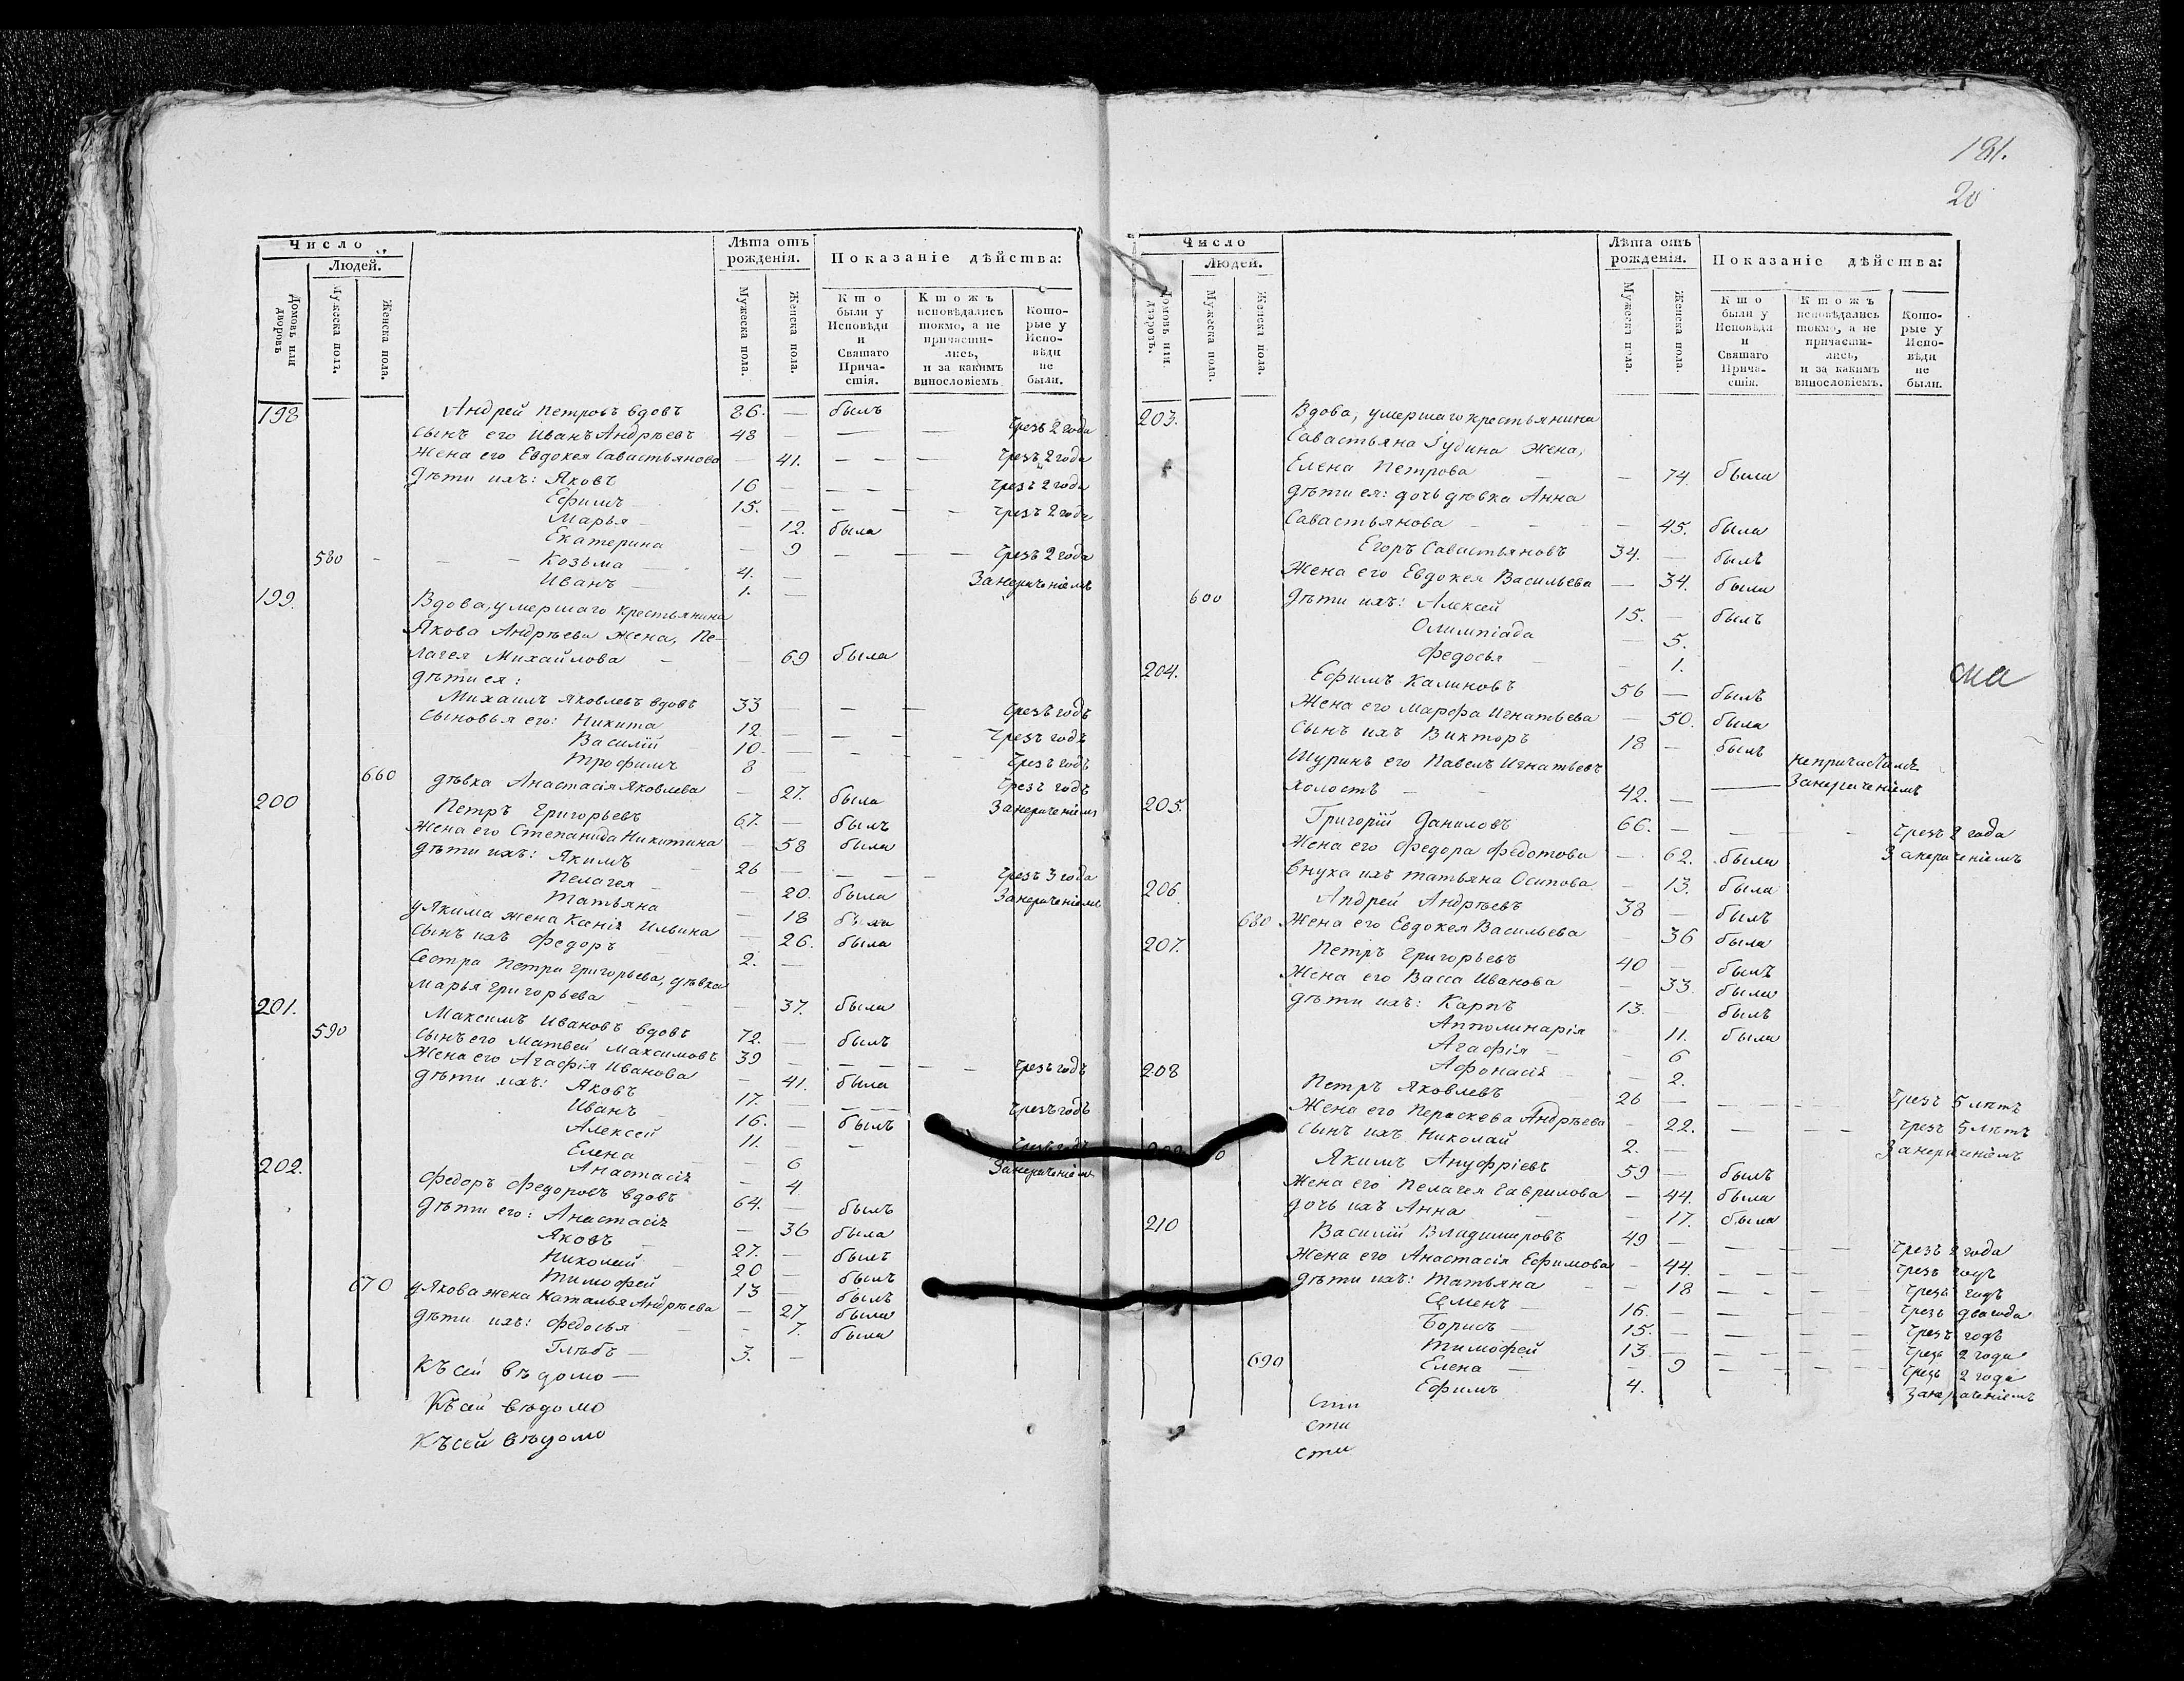 Число
Людей.
Домовъ или дворовъ
Мужеска пола.
Женска пола.
Лѣта отъ рожденія.
Мужеска пола.
Женска пола.
Показаніе дѣйства:
Кто были у Исповѣди и Святаго Причастія.
Ктожъ исповѣдались токмо, а не причастились, и за какимъ винословіемъ.
Которые у Исповѣди не были.
198 Андрей Петровъ вдовъ 86. — былъ
Сынъ его Иванъ Андрѣевъ 48 — — — Чрезъ 2 года
Жена его Евдокея Савастьянова — 41. — — Чрезъ 2 года
Дѣти ихъ: Яковъ 16 — — — Чрезъ 2 года
Ефимъ — 15. — — — Чрезъ 2 года
Марья — — 12. была
Екатерина — 9 — — Чрезъ 2 года
580 — — — Козьма — 4. — Занеричніемъ
Иванъ — 1. —
199. Вдова, умершаго крестьянина
Якова Андрѣева жена, Пе-
лагея Михайлова — 69 была
дѣти ея:
Михаилъ Яковлевъ вдовъ 33 — — — Чрезъ годъ
Сыновья его: Никита 12 — — — Чрезъ годъ
Василій 10. — — — Чрезъ годъ
Трофимъ 8 — Чрезъ годъ
660 дѣвка Анастасія Яковлева — 27. была Занериченіемъ
200 Петръ Григорьевъ 67. — былъ
Жена его Степанида Никитина — 58 была
дѣти ихъ: Якимъ — 26 — — — Чрезъ 3 года
Пелагея — — 20. была Занериченіемъ
Татьяна — 18 была
у Якима жена Ксенія Ильина — 26. была
Сынъ ихъ Федоръ 2. —
Сестра Петра Григорьева, дѣвка
Марья Григорьева — — 37. была
201. Максимъ Ивановъ вдовъ 72. — былъ
590 Сынъ его Матвей Максимовъ 39 — — — Чрезъ годъ
Жена его Агафія Иванова — 41. была
Дѣти ихъ: Яковъ 17. — — Чрезъ годъ
Иванъ — 16. — былъ
Алексей 11. — — Чрезъ годъ
Елена — 6 Занериченіемъ
Анастасія — 4.
202. Федоръ Федоровъ вдовъ 64. — былъ
Дѣти его: Анастасія — 36 была
Яковъ — 27. — былъ
Николай — 20 — былъ
Тимофей 13 — былъ
670 у Якова жена Наталья Андрѣева — 27 была
Дѣти ихъ: Федосья — — 7. была
Глѣбъ — 3. —
Къ сей вѣдомо —
Къ сей вѣдомо
Къ сей вѣдомо
181.
20
Число
Людей.
Домовъ или дворовъ.
Мужеска пола.
Женска пола.
Лѣта отъ рожденія.
Мужеска пола.
Женска пола.
Показаніе дѣйства:
Кто были у Исповѣди и Святаго Причастія.
Ктожъ исповѣдались токмо, а не причастились, и за какимъ винословіемъ.
Которые у Исповѣди не были.
203. Вдова, умершаго крестьянина
Савастьяна Гудина жена,
Елена Петрова — — 74. была
дѣти ея: дочь дѣвка Анна
Савастьянова — — — 45. была
Егоръ Савастьяновъ 34. — былъ
Жена его Евдокея Васильева — 34. была
600 Дѣти ихъ: Алексей 15. — былъ
Олимпіада — 5.
Федосья — — 1.
204. Ефимъ Калиновъ 56 — былъ
Жена его Марфа Игнатьева — 50. была
Сынъ ихъ Викторъ 18 — былъ
Шуринъ его Павелъ Игнатьевъ
холостъ — 42. — — Занериченіемъ
205. Григорій Даниловъ 66. — — — Чрезъ 2 года
Жена его Федора Федотова — 62. была Занериченіемъ
Внука ихъ Татьяна Осипова — 13. была
206. Андрей Андрѣевъ 38 — былъ
680 Жена его Евдокея Васильева — 36 была
207. Петръ Григорьевъ 40 — былъ
Жена его Васса Иванова — 33 была
дѣти ихъ: Карпъ 13. — былъ
Апполинарія — 11. была
Агафія — — 6
Афонасія — — 2.
208 Петръ Яковлевъ 26 — — — Чрезъ 5 лѣтъ
Жена его Пераскева Андрѣева — 22. — — — Чрезъ 5 лѣтъ
Сынъ ихъ Николай 2. — Занериченіемъ
Якимъ Ануфріевъ 59 — былъ
Жена его Пелагея Гаврилова — 44. была
дочь ихъ Анна — — 17. была
210 Василій Владимировъ 49 — — — — Чрезъ 2 года
Жена его Анастасія Ефимова — 44. — — Чрезъ годъ
дѣти ихъ: Татьяна — — 18 — — — Чрезъ годъ
Семенъ — 16. — — — Чрезъ два года
Борисъ — 15. — — — — Чрезъ годъ
Тимофей 13 — — — Чрезъ 2 года
690 Елена — — 9 — — — Чрезъ 2 года
Ефимъ 4. Занериченіемъ
ма
сти
сти
сти